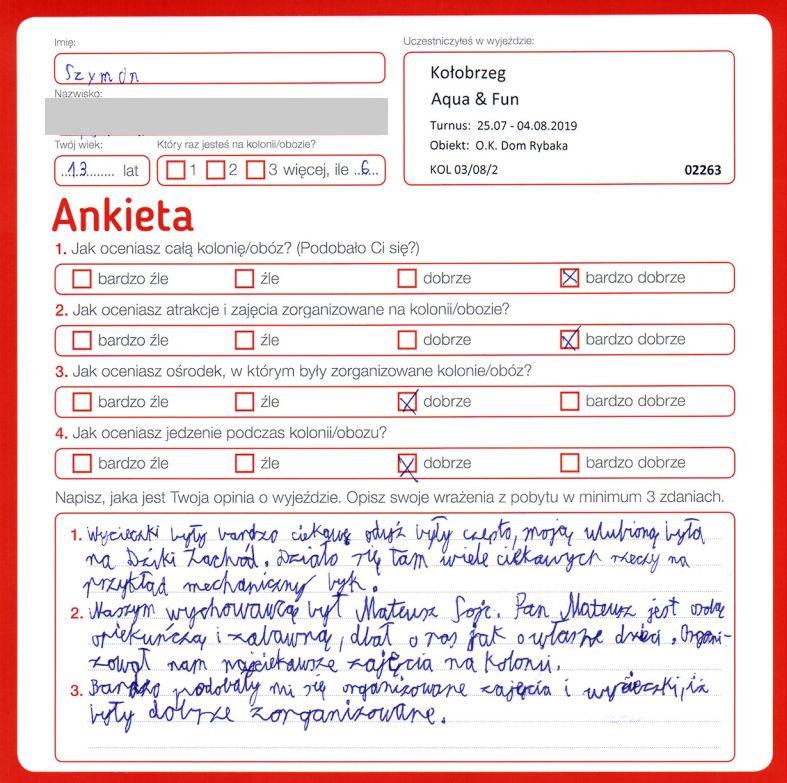 Imię:
Szymon
Nazwisko:
Twój wiek:
13 lat
Który raz jesteś na kolonii/obozie?
1 2 3 więcej, ile ..6...
Uczestniczyłeś w wyjeździe:
Kołobrzeg
Aqua & Fun
Turnus: 25.07 - 04.08.2019
Obiekt: O.K. Dom Rybaka
KOL 03/08/2 02263
Ankieta
1. Jak oceniasz całą kolonię/obóz? (Podobało Ci się?)
bardzo źle źle dobrze bardzo dobrze
2. Jak oceniasz atrakcje i zajęcia zorganizowane na kolonii/obozie?
bardzo źle źle dobrze bardzo dobrze
3. Jak oceniasz ośrodek, w którym były zorganizowane kolonie/obóz?
bardzo źle źle dobrze bardzo dobrze
4. Jak oceniasz jedzenie podczas kolonii/obozu?
bardzo źle źle dobrze bardzo dobrze
Napisz, jaka jest Twoja opinia o wyjeździe. Opisz swoje wrażenia z pobytu w minimum 3 zdaniach.
1. Wycieczki były bardzo ciekawe były często, moją ulubioną była
na Dziki Zachód. Działo się tam wiele ciekawych rzeczy na
przykład mechaniczny byk.
2. Naszym wychowawcą był Mateusz Sojc. Pan Mateusz jest osobą
opiekuńczą i zabawną, dbał o nas jak o własne dzieci. Organi-
zował nam najciekawsze zajęcia na kolonii.
3. Bardzo podobały mi się organizowane zajęcia i wycieczki, iż
były dobrze zorganizowane.